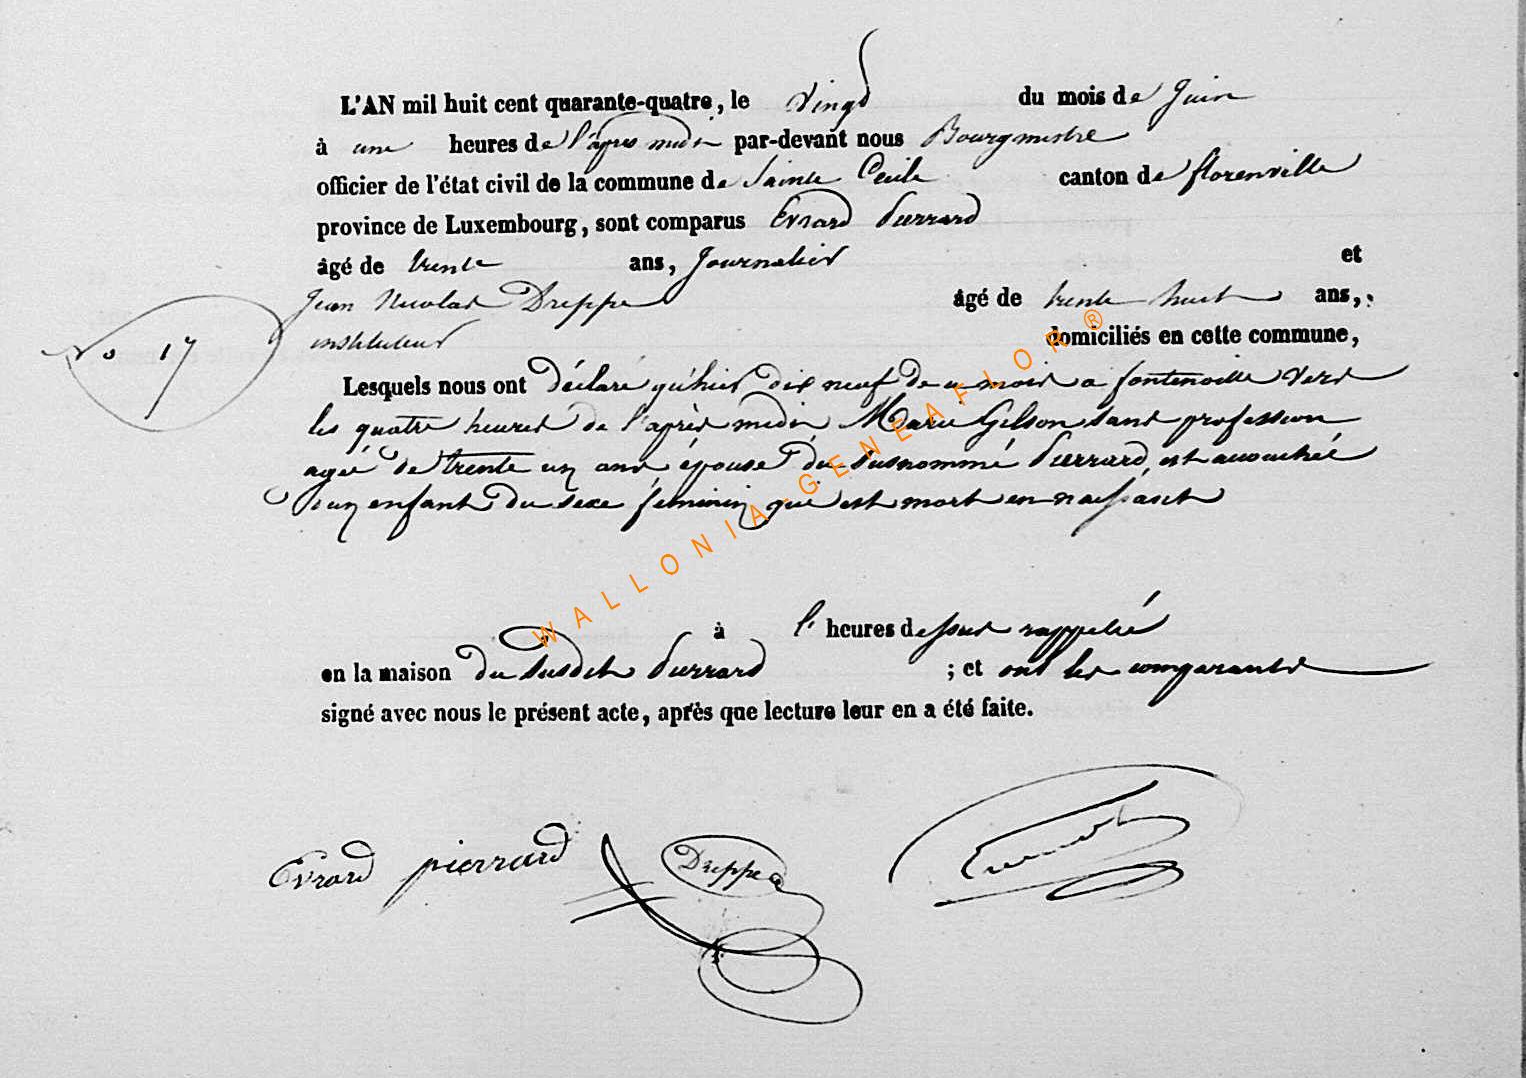 L'AN mil huit cent quarante-quatre, le vingt du mois de Juin
à une heures de l'après midi par-devant nous Bourgmestre
officier de l'état civil de la commune de Sainte Cecile canton de florenville
province de Luxembourg, sont comparus Evrard Pierrard
âgé de trente ans, Journalier et
Jean Nicolas Dreppe âgé de trente huit ans,
No 17
instituteur domiciliés en cette commune,
Lesquels nous ont déclaré qu'hier dix neuf de ce mois a fontenoille vers
les quatre heures de l'après midi Marie Gilson sans profession
agée de trente un ans épouse du susnommé Pierrard, est accouchée
d'un enfant du sexe féminin qui est mort en naissant
à l' heures dessus rappelée
en la maison du susdit Pierrard ; et ont les comparants
signé avec nous le présent acte, après que lecture leur en a été faite.
Evrard pierrard Dreppe
WALLONIA-GENEAFLOR ®